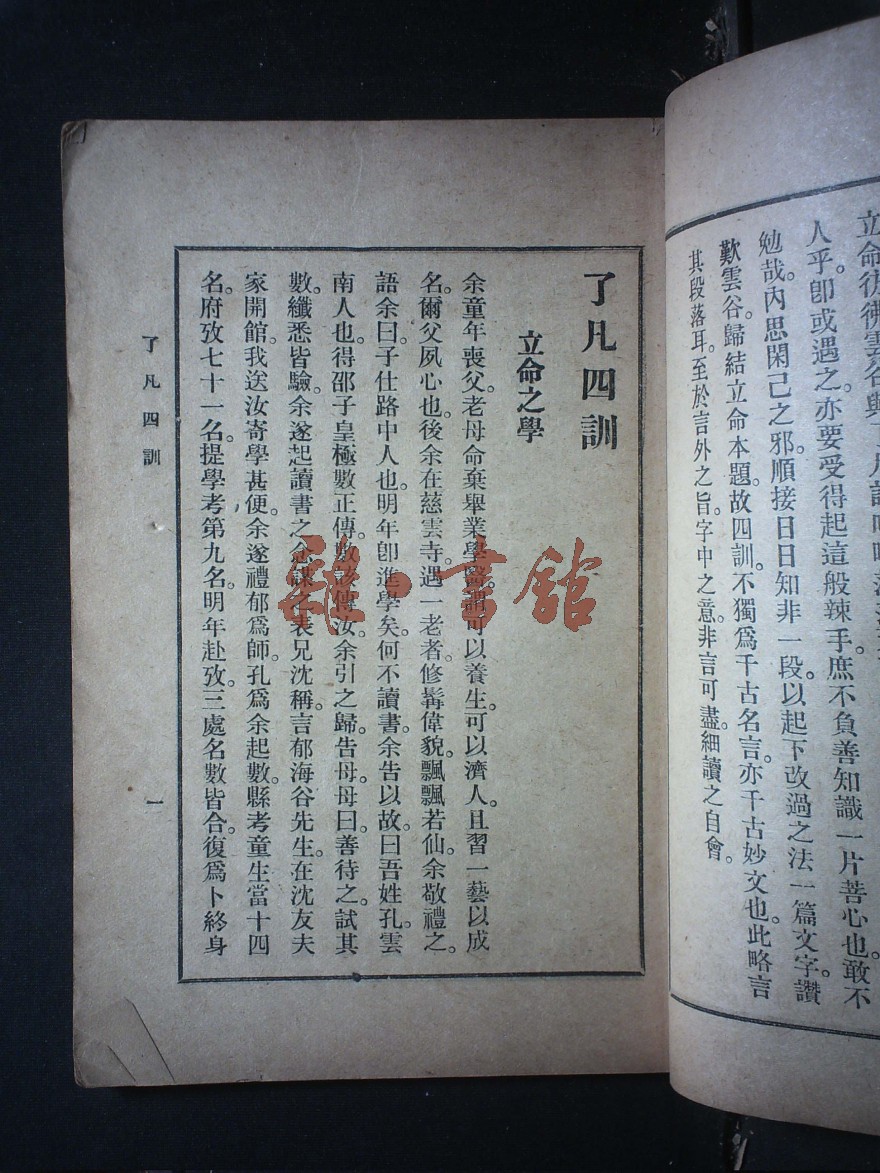 立命彷彿雲谷與了凡
人乎。卽或遇之。亦要受得起這般辣手。庶不負善知識一片菩心也。敢不
勉哉。內思閑己之邪。順接日日知非一段。以起下改過之法一篇文字。讚
歎雲谷。歸結立命本題。故四訓。不獨爲千古名言。亦千古妙文也。此略言
其段落耳。至於言外之旨。字中之意。非言可盡。細讀之自會。
了凡四訓
立命之學
余童年喪父。老母命棄舉業學醫。謂可以養生。可以濟人。且習一藝以成
名。爾父夙心也。後余在慈雲寺。遇一老者。修髯偉貌。飄飄若仙。余敬禮之。
語余曰。子仕路中人也。明年卽進學矣。何不讀書。余告以故。曰吾姓孔。雲
南人也。得邵子皇極數正傳。數該傳汝。余引之歸。告母。母曰善待之。試其
數。纖悉皆驗。余遂起讀書之念。謀之表兄沈稱。言郁海谷先生。在沈友夫
家開館。我送汝寄學甚便。余遂禮郁爲師。孔爲余起數。縣考童生當十四
名。府攷七十一名。提學考第九名。明年赴攷。三處名數皆合。復爲卜終身
了凡四訓
一
雜·書館